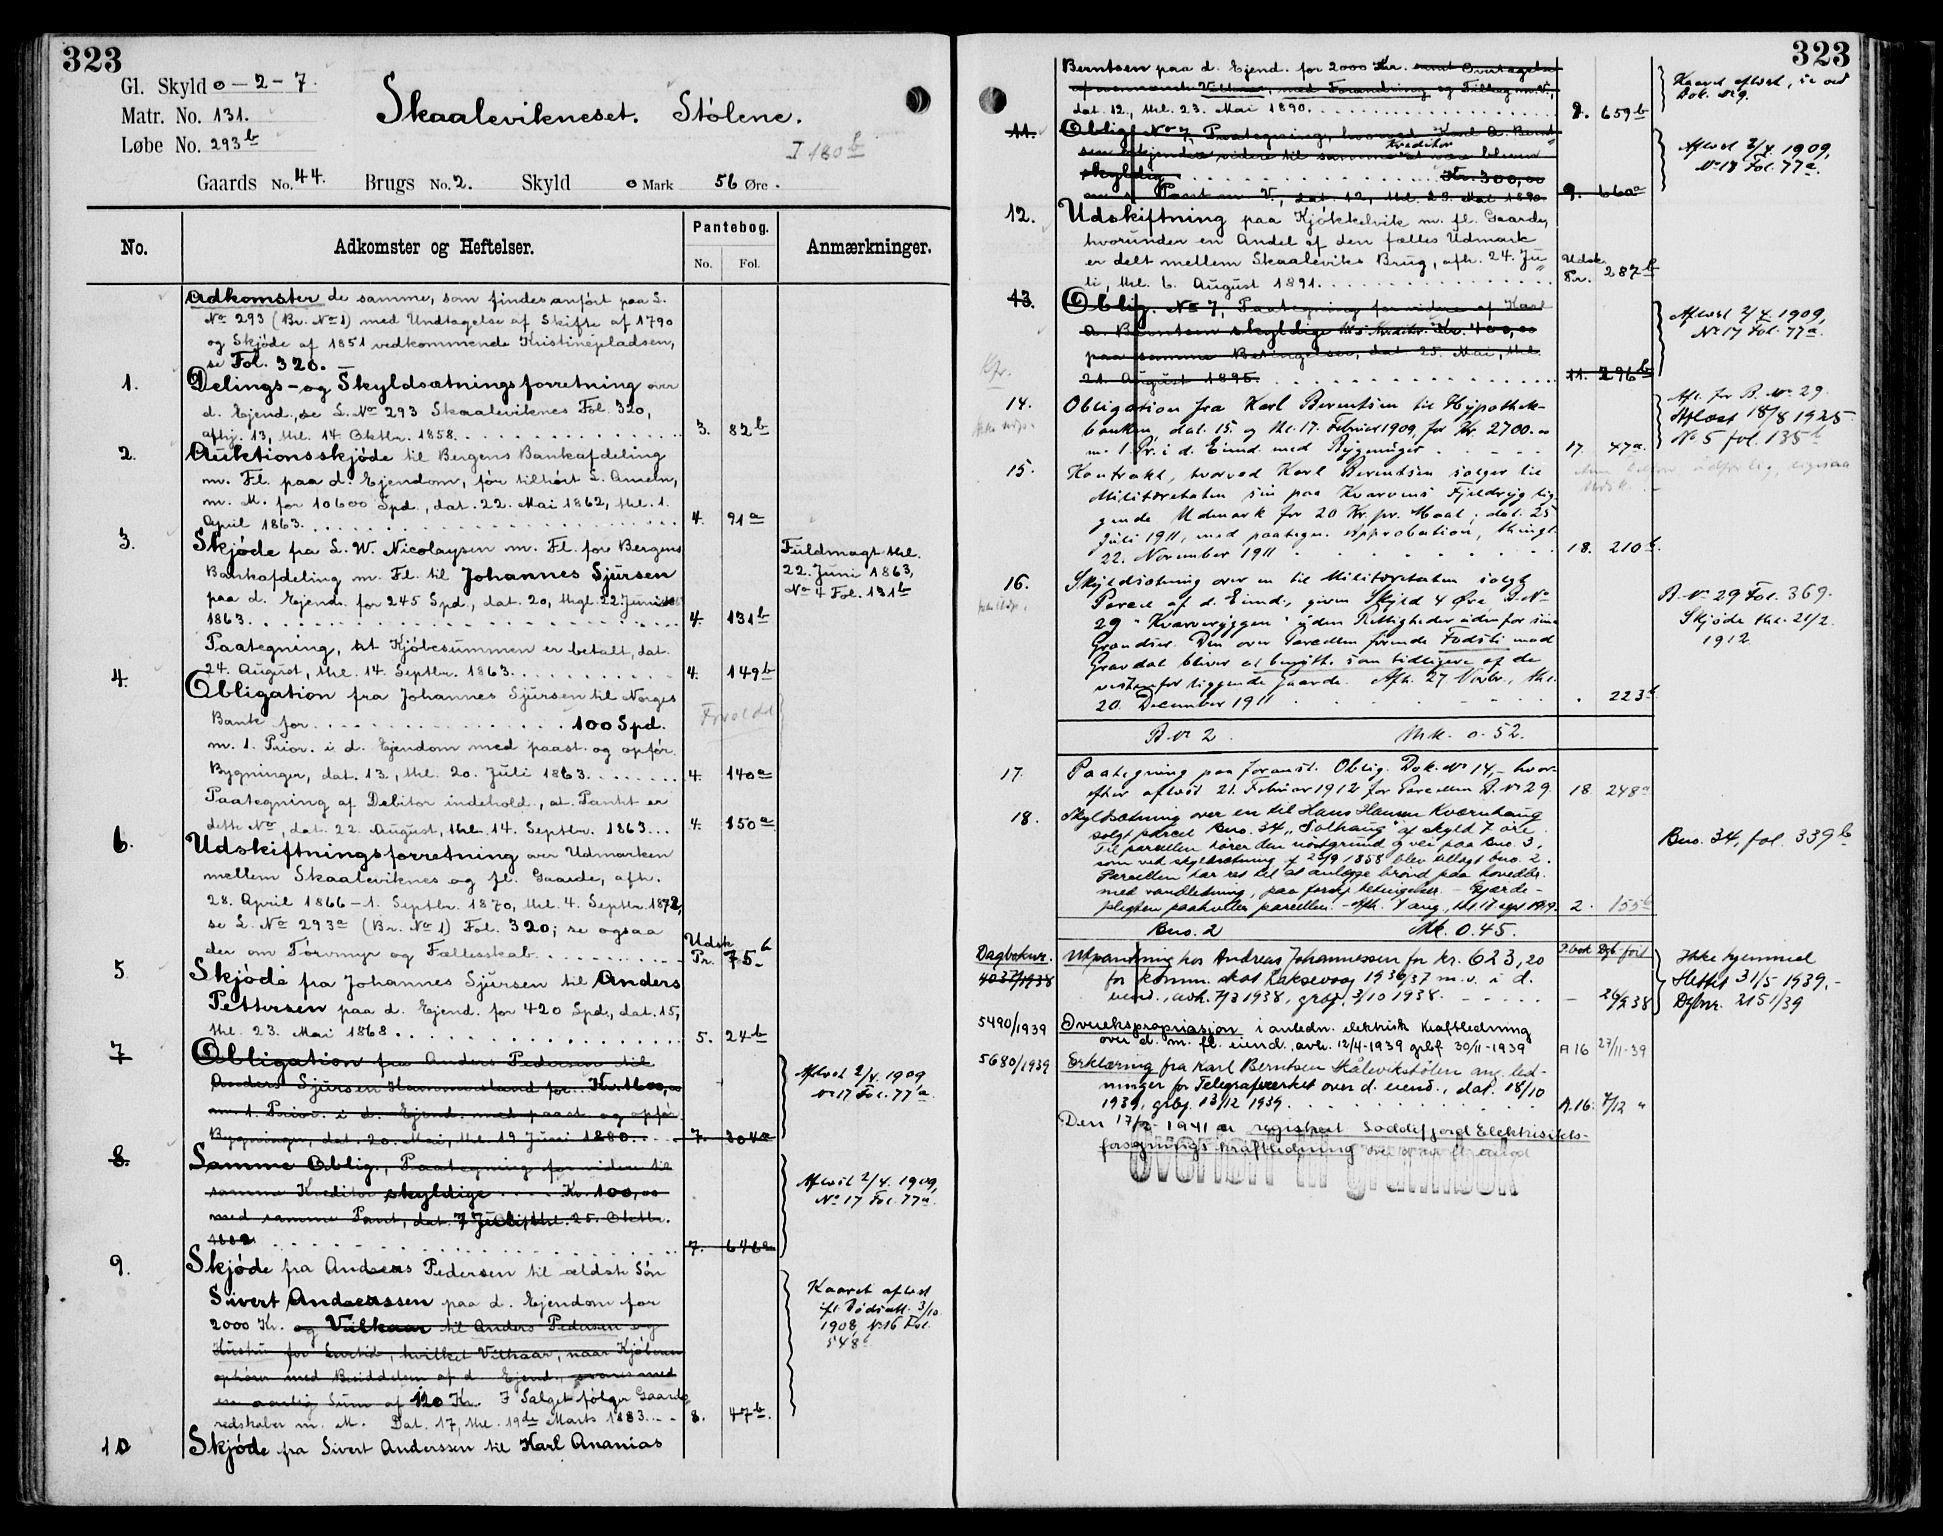 323
Gl. Skyld 0 – 2 – 7.
Matr. No. 131.
Løbe No. 293b
Skaalevikneset. Stólene.
I 180b
Gaards No. 44. Brugs No. 2. Skyld 0 Mark 56 Øre.
No. Adkomster og Heftelser. Pantebog. No. Fol. Anmærkninger.
Adkomster de samme, som findes anført paa L.
No 293 (Br. No 1) med Undtagelse af Skifte af 1790
og Skjøde af 1851 vedkommende Kristinepladsen,
se Fol. 320.
1. Delings- og Skyldsætningsforretning over
d. Ejend., se L. No 293 Skaaleviknes Fol. 320,
afhj. 13, thl. 14 Oktbr. 1858. 3. 82b
2. Auktionsskjøde til Bergens Bankafdeling
m. Fl. paa d. Ejendom, før tilhørt L. Ameln,
m. M. for 10600 Spd., dat. 22. Mai 1862, thl. 1.
April 1863. 4. 91a
3. Skjøde fra L. W. Nicolaysen m. Fl. for Bergens
Bankafdeling m. Fl. til Johannes Sjursen
paa d. Ejend. for 245 Spd., dat. 20, thgl. 22 Juni
1863. 4. 131b
Fuldmagt thl.
22. Juni 1863,
No 4 Fol. 131b
Paategning, at Kjøbesummen er betalt, dat.
24. August, thl. 14. Septbr. 1863. 4. 149b
4. Obligation fra Johannes Sjursen til Norges
Bank for 100 Spd.
m. 1. Prior. i d. Ejendom med paast. og opfør.
Bygninger, dat. 13., thl. 20. Juli 1863. 4. 140a
Forældet
Paategning af Debitor indehold., at Pantet er
dette No, dat. 22. August, thl. 14. Septbr. 1863. 4. 150a
6. Udskiftningsforretning over Udmarken
mellem Skaaleviknes og fl. Gaarde, afh.
28. April 1866 – 1. Septbr. 1870, thl. 4. Septbr. 1872,
se L. No 293a (Br. No 1) Fol. 320; se ogsaa
der om Tørvmyr og Fællesskab. Udsk. Pr. 75b
5. Skjøde fra Johannes Sjursen til Anders
Pettersen paa d. Ejend. for 420 Spd., dat. 15,
thl. 23. Mai 1868. 5. 24b
7 Obligation fra Anders Pedersen til
Anders Sjursen Hammersland for Kr. 1600,00
m. 1. Prior. i d. Ejend. med paast. og opfør
Bygninger, dat. 20. Mai, thl. 19 Juni 1880. 7. 304a
Aflæst 2/4. 1909,
No 17 Fol. 77a.
8. Samme Oblig., Paategning for videre til
samme Kreditor skyldige Kr. 100,00
med samme Pant, dat. 7 Juli, thl. 25. Oktbr.
1882 7. 646a
Aflæst 2/4. 1909,
No 17 Fol. 77a.
9. Skjøde fra Andreas Pedersen til ældste Søn
Sivert Andreassen paa d. Ejendom for
2000 Kr. og Vilkaar til Anders Pedersen og
Hustru for Livstid, hvilket Vilkaar, naar Kjøberen
ophører med Besiddelsen af d. Ejend., svares med
en aarlig Sum af 120 Kr. I Salget følger Gaards-
redskaber m. M. Dat. 17, thl. 19de Marts 1883. 8. 47b.
Kaaret aflæst
ifl. Dødsatt. 3/10.
1908, No 16 Fol.
548b
10 Skjøde fra Sivert Anderssen til Karl Ananias
323
Berntsen paa d. Ejend. for 2000 Kr. samt Overtagelse
af nævnte Vilkaar, med Forandring og Tillæg m. V.,
dat. 12, thl. 23. Mai 1890. 9. 659b
Kaaret aflæst, se ved
Dok. No 9.
11. Oblig. No 7, Paategning, hvorved Karl A. Bernt-
sen erkjender videre til samme Kreditor at være bleven
skyldig Kr. 300,00
Pant m. V., dat. 12, thl. 23. Mai 1890 9. 660a
Aflæst 2/4. 1909,
No 17 Fol. 77a.
12. Udskiftning paa Kjøkkelvik m. fl. Gaarde,
hvorunder en Andel af den fælles Udmark
er delt mellem Skaaleviks Brug, afh. 24. Ju-
li, thl. 6. August 1891. Udsk. Pr. 287b
13. Oblig. No 7, Paategning for videre af Karl
A. Berntsen skyldige til s. Kreditor Kr. 400,00
paa samme Betingelser, dat. 25. Mai, thl.
21. August 1895. 11. 296b
Aflæst 2/4. 1909,
No 17 Fol. 77a.
Kfr.
14. Obligation fra Karl Berentsen til Hypothek-
banken, dat. 15. og thl. 17. Februar 1909, for Kr. 2700.00
m. 1. Pr. i d. Eiend. med Bygninger 17. 47a.
Afl. for B. No 29.
Aflæst 18/8 1925
No 5 fol. 135b
15. Kontrakt, hvorved Karl Berentsen sælger til
Militæretaten sin paa Kvarvens Fjeldryg lig-
gende Udmark for 20 Kr. pr. Maal; dat. 25
Juli 1911, med paategn. Approbation, thingl.
22. November 1911 18. 210b.
16. Skyldsætning over en til Militæretaten solgt
Parcel af d. Eiend., given Skyld 4 Øre, B. No
29 "Kvarveryggen" uden Rettigheder udenfor sine
Grændser. Den over Parcellen førende Fodsti mod
Gravdal bliver at benytte som tidligere af de
vestenfor liggende Gaarde. Afh. 27 Novbr., thl.
20. December 1911 223b.
B. No 29 Fol. 369.
Skjøde thl. 21/2.
1912.
B. No 2. Mk. 0.52.
17. Paategning paa foranst. Oblig. Dok. No 14, hvor-
efter aflæst 21. Februar 1912 for Parcellen B. No 29. 18. 248a
18. Skyldsætning over en til Hans Hansen Kværnhaug
solgt parcel Bno. 34 "Solhaug" af skyld 7 øre.
Til parcellen hører den nøstgrund og vei paa Bno. 3,
som ved skyldsætning af 25/9 1858 blev tillagt bno. 2.
Parcellen har ret til at anlægge brønd paa hovedbr.
med vandledning, paa forskj. betingelser. – Gjærde-
pligten paahviler parcellen. – Afh. 7 aug., thl. 17 sept 1919. 2. 155b
Bno. 34, fol. 339b
Bno. 2 Mk. 0.45.
Dagboknr. P.bok Dgb. ført
4037/1938 Utpantning hos Andreas Johannessen for kr. 623,20
for komm. skat Laksevaag 1936/37 m.v. i d.
eiend., avh. 7/3 1938, grbf. 3/10 1938. – 26/9 38
Ikke hjemmel
Slettet 31/5 1939.-
Dgbnr. 2151/39
5490/1939 Overekspropriasjon i anledn. elektrisk kraftledning
over d. m. fl. eiend., avh. 12/4-1939 grbf 30/11-1939 A 16 27/11-39
5680/1939 Erklæring fra Karl Berntsen Skålevikstølen ang. led-
ninger for Telegrafverket over d. eiend., dat. 18/10
1939, grbf. 13/12 1939. A. 16. 7/12 "
Den 17/12- 1941 er registrert Soddefjord Elektrisitets-
forsynings kraftledning over d. m. fl. eiend
Overført til grunnbok